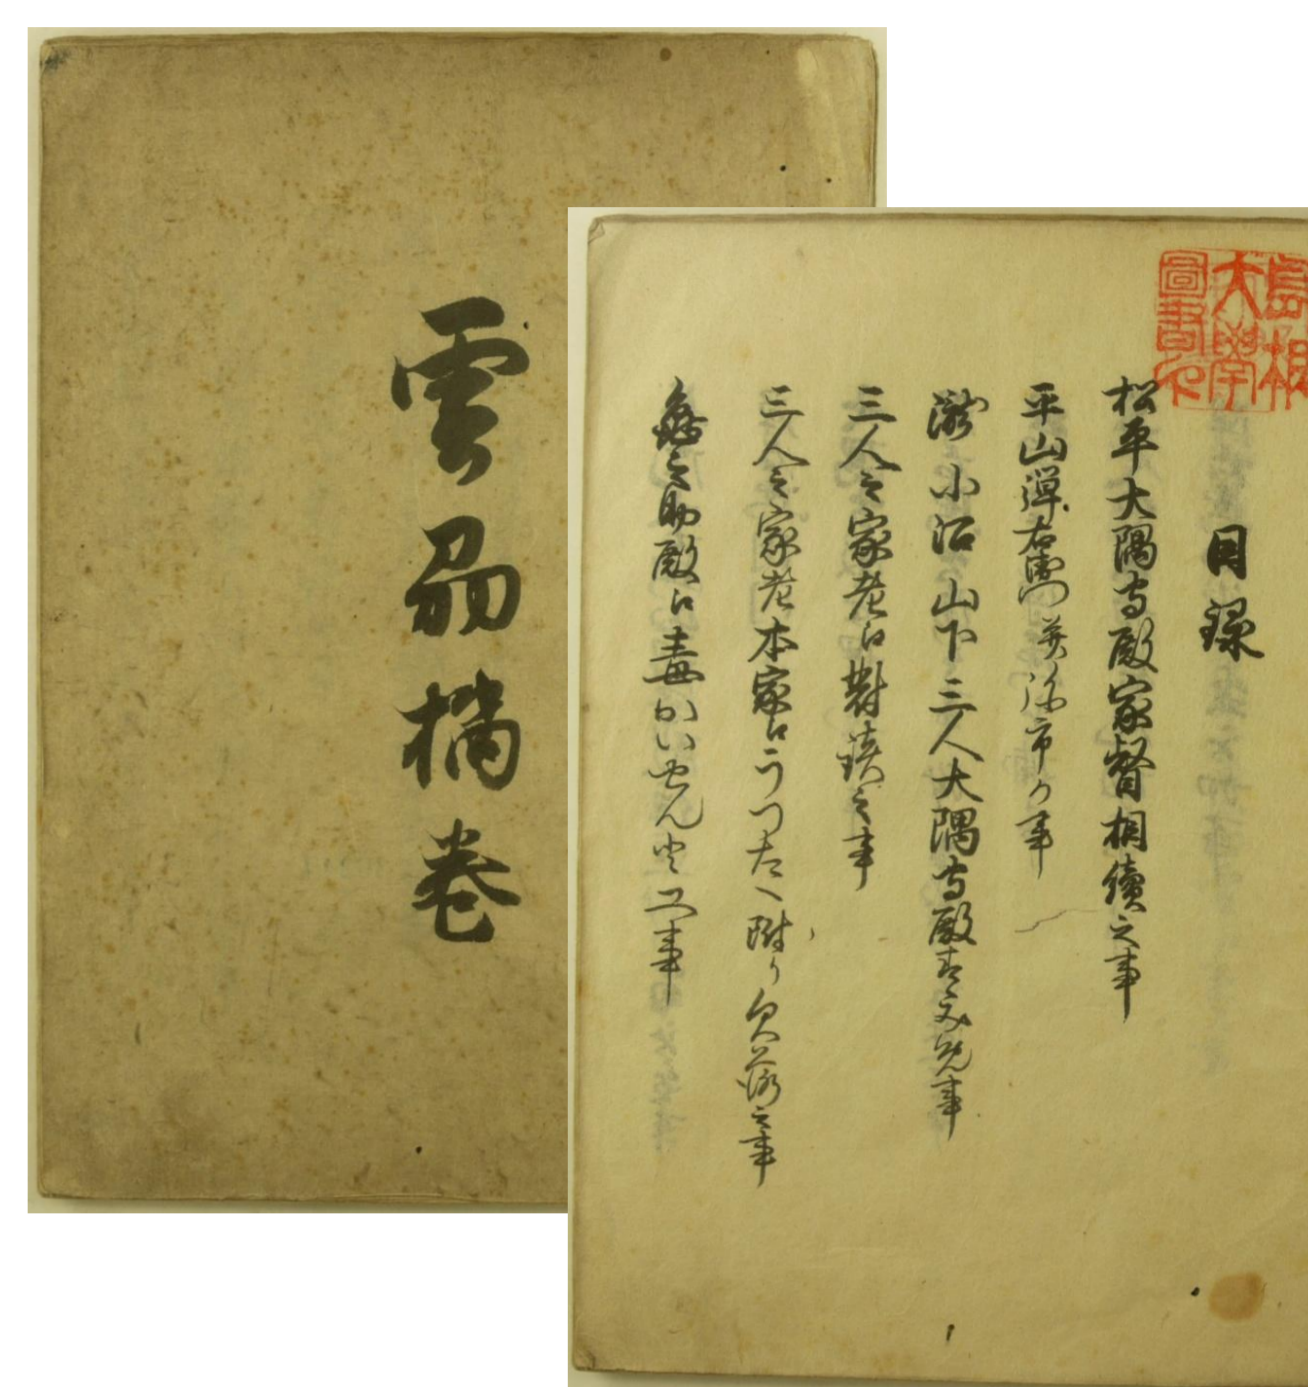 雲州橘巻
島根
大學
圖書
目録
松平大隅守殿家督相續之事
平山弾右衛門并弥市カ事
瀧小沼山下三人大隅守殿
三人之家老江對談之事
三人之家老本家江うつたへ附り欠落之事
之助殿江毒かい